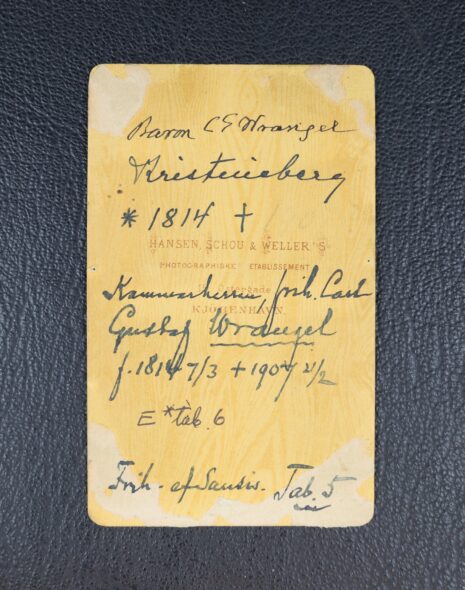 Baron C E Wrangel
Kristineberg
* 1814 +
HANSEN, SCHOU & WELLER'S
PHOTOGRAPHISKE ETABLISSEMENT
Kammarherren, frih. Carl
Østergade
KJÖBENHAVN.
Gustaf Wrangel
f. 1814 7/3 + 1907 21/2
E * tab. 6
Frih. af Sausis. Tab. 5